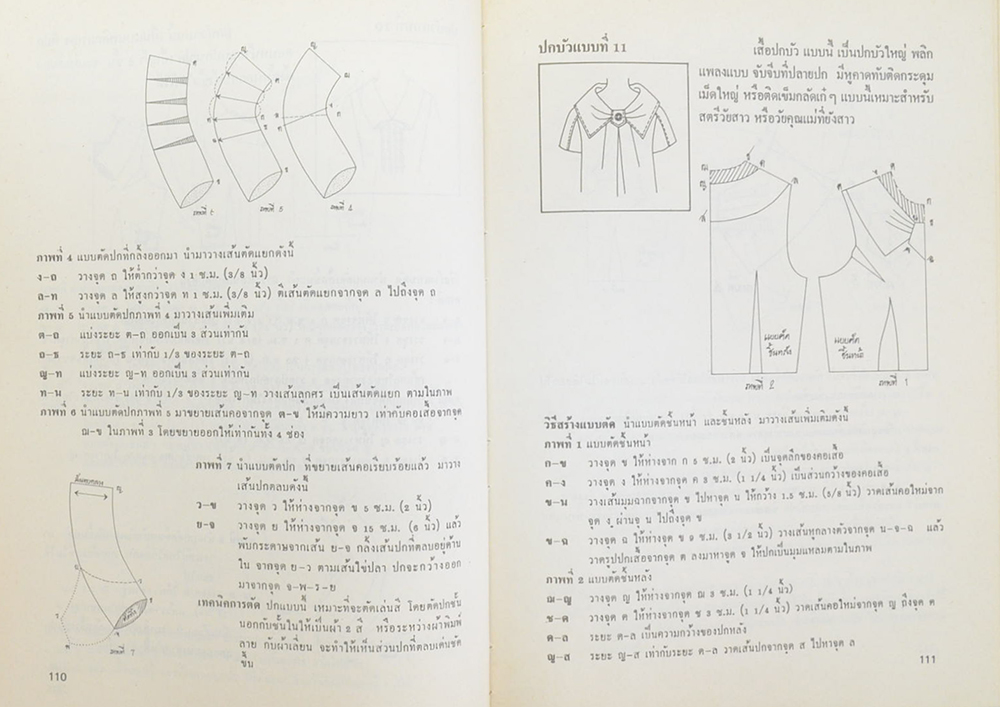 ภาพที่ 6
ภาพที่ 5
ภาพที่ 4
ภาพที่ 4 แบบตัดปกที่กลิ้งออกมา นำมาวางเส้นตัดแยกดังนี้
ง-ถ วางจุด ถ ให้ต่ำกว่าจุด ง 1 ซ.ม. (3/8 นิ้ว)
ล-ท วางจุด ล ให้สูงกว่าจุด ท 1 ซ.ม. (3/8 นิ้ว) ตีเส้นตัดแยกจากจุด ล ไปถึงจุด ถ
ภาพที่ 5 นำแบบตัดปกภาพที่ 4 มาวางเส้นเพิ่มเติม
ต-ถ แบ่งระยะ ต-ถ ออกเป็น 3 ส่วนเท่ากัน
ถ-ธ ระยะ ถ-ธ เท่ากับ 1/3 ของระยะ ต-ถ
ญ-ท แบ่งระยะ ญ-ท ออกเป็น 3 ส่วนเท่ากัน
ท-น ระยะ ท-น เท่ากับ 1/3 ของระยะ ญ-ท วางเส้นลูกศร เป็นเส้นตัดแยก ตามในภาพ
ภาพที่ 6 นำแบบตัดปกภาพที่ 5 มาขยายเส้นคอจากจุด ต-ข ให้มีความยาว เท่ากับคอเสื้อจากจุด
ฌ-ข ในภาพที่ 3 โดยขยายออกให้เท่ากันทั้ง 4 ช่อง
ภาพที่ 7 นำแบบตัดปก ที่ขยายเส้นคอเรียบร้อยแล้ว มาวาง
เส้นปกตลบดังนี้
ว-ข วางจุด ว ให้ห่างจากจุด ข 5 ซ.ม. (2 นิ้ว)
ย-จ วางจุด ย ให้ห่างจากจุด จ 15 ซ.ม. (6 นิ้ว) แล้ว
พับกระดาษจากเส้น ย-จ กลิ้งเส้นปกที่ตลบอยู่ด้าน
ใน จากจุด ย-ว ตามเส้นไข่ปลา ปกจะกว้างออก
มาจากจุด จ-พ-ร-ย
เทคนิคการตัด ปกแบบนี้ เหมาะที่จะตัดเล่นสี โดยตัดปกชั้น
นอกกับชั้นในให้เป็นผ้า 2 สี หรือระหว่างผ้าพิมพ์
ลาย กับผ้าเลี่ยน จะทำให้เห็นส่วนปกที่ตลบเด่นชัด
ขึ้น
ภาพที่ 7
110
ปกบัวแบบที่ 11
เสื้อปกบัว แบบนี้ เป็นปกบัวใหญ่ พลิก
แพลงแบบ จับจีบที่ปลายปก มีหูคาดทับติดกระดุม
เม็ดใหญ่ หรือติดเข็มกลัดเก๋ๆ แบบนี้เหมาะสำหรับ
สตรีวัยสาว หรือวัยคุณแม่ที่ยังสาว
แบบตัด
ชิ้นหลัง
แบบตัด
ชิ้นหน้า
ภาพที่ 2
ภาพที่ 1
วิธีสร้างแบบตัด นำแบบตัดชิ้นหน้า และชิ้นหลัง มาวางเส้นเพิ่มเติมดังนี้
ภาพที่ 1 แบบตัดชิ้นหน้า
ก-ข วางจุด ข ให้ห่างจาก ก 5 ซ.ม. (2 นิ้ว) เป็นจุดลึกของคอเสื้อ
ค-ง วางจุด ง ให้ห่างจากจุด ค 3 ซ.ม. (1 1/4 นิ้ว) เป็นส่วนกว้างของคอเสื้อ
ข-น วางเส้นมุมฉากจากจุด ข ไปหาจุด น ให้กว้าง 1.5 ซ.ม. (5/8 นิ้ว) วาดเส้นคอใหม่จาก
จุด ง ผ่านจุด น ไปถึงจุด ข
ข-ฉ วางจุด ฉ ให้ห่างจุด ข 9 ซ.ม. (3 1/2 นิ้ว) วางเส้นหูกลางตัวจากจุด น-จ-ฉ แล้ว
วาดรูปปกเสื้อจากจุด ต ลงมาหาจุด จ ให้ปกเป็นมุมแหลมตามในภาพ
ภาพที่ 2 แบบตัดชิ้นหลัง
ฌ-ญ วางจุด ญ ให้ห่างจากจุด ฌ 3 ซ.ม. (1 1/4 นิ้ว)
ช-ด วางจุด ด ให้ห่างจากจุด ช 3 ซ.ม. (1 1/4 นิ้ว) วาดเส้นคอใหม่จากจุด ญ ถึงจุด ด
ด-ล ระยะ ด-ล เป็นความกว้างของปกหลัง
ญ-ส ระยะ ญ-ส เท่ากับระยะ ด-ล วาดเส้นปกจากจุด ส ไปหาจุด ล
111